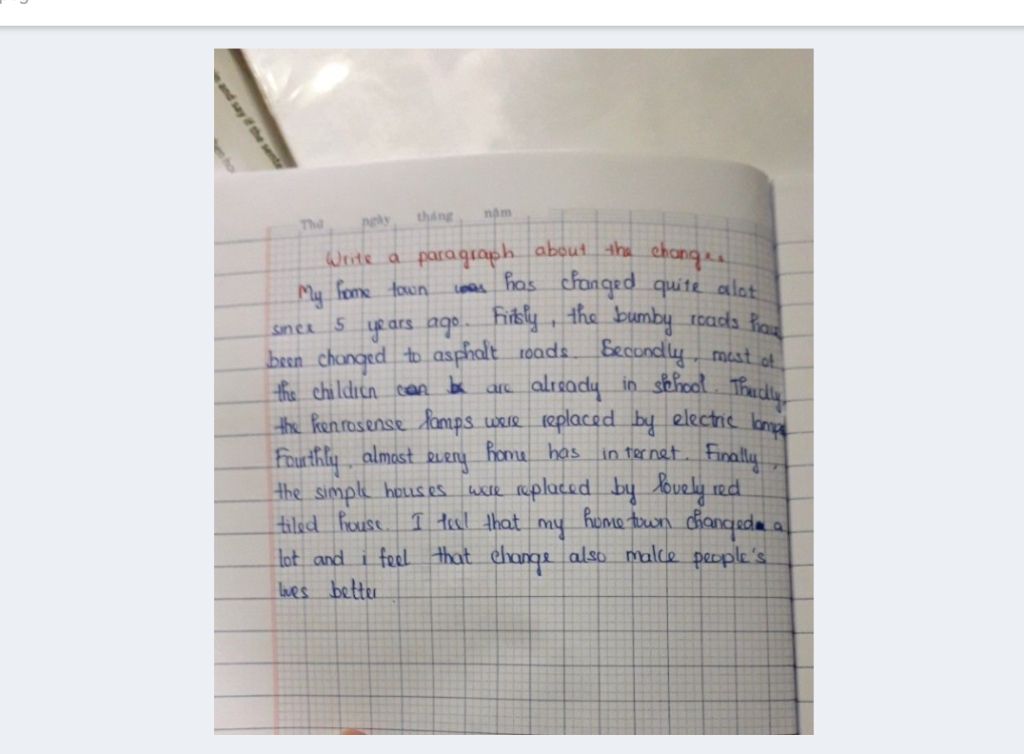 and say if the
Thứ ngày tháng năm
Write a paragraph about the changes
My home town was has changed quite alot
since 5 years ago. Firtsly, the bumby roads have
been changed to asphalt roads. Secondly, most of
the children can be are already in school. Thirdly,
the kenrosense lamps were replaced by electric lamps
Fourthly, almost every home has internet. Finally,
the simple houses were replaced by lovely red
tiled house. I feel that my hometown changed a
lot and i feel that change also make people's
lives better.